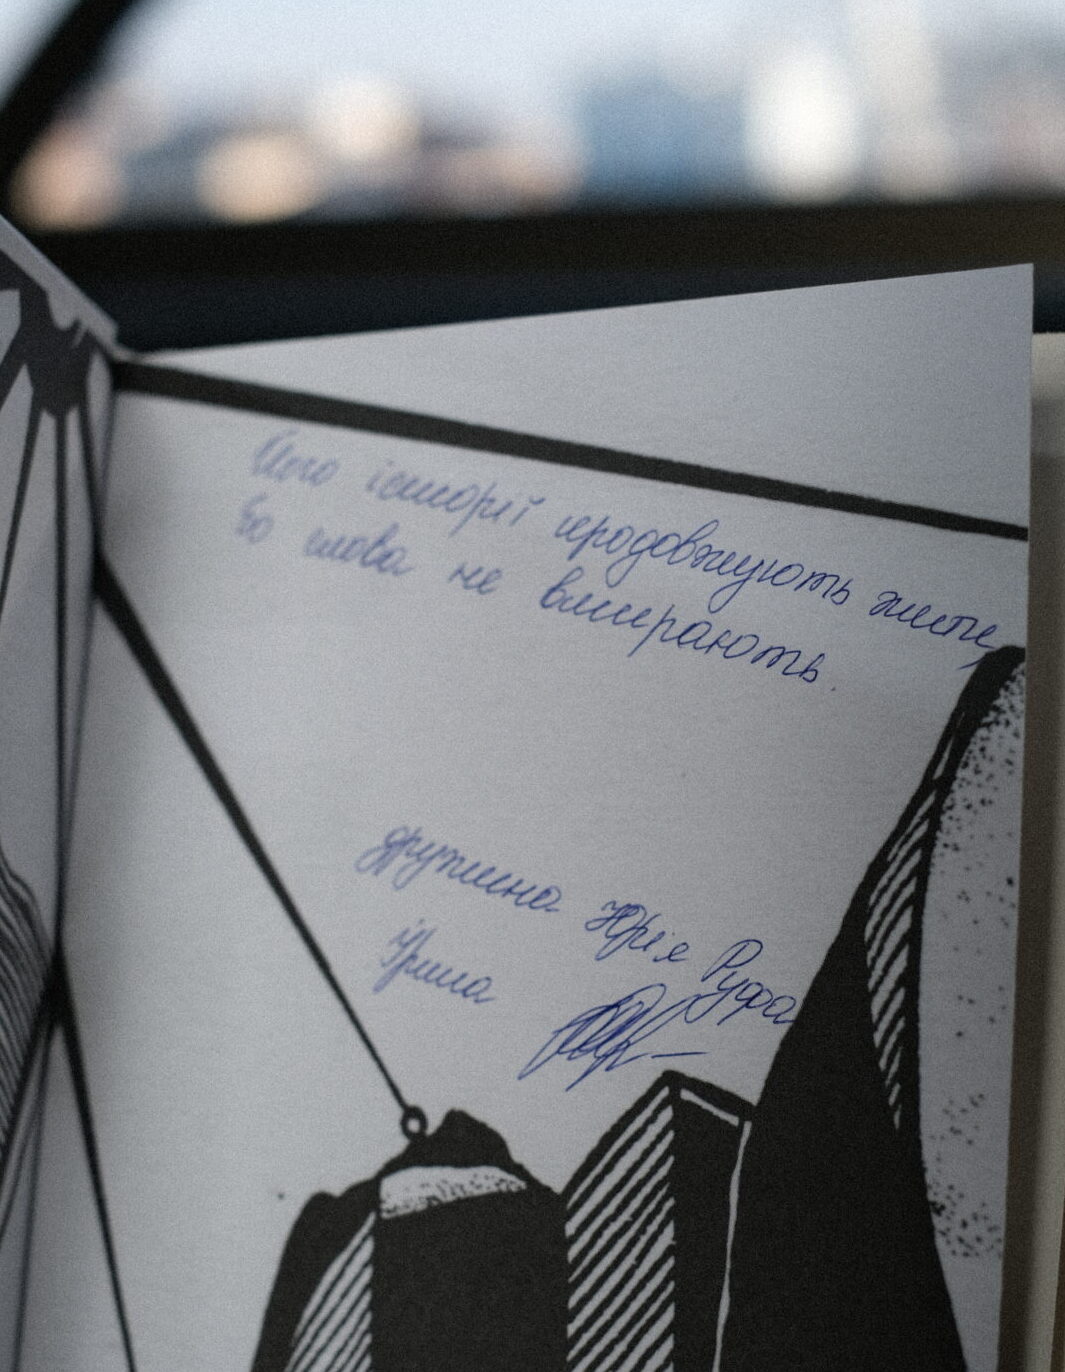 Його історії продовжують жити,
бо слова не вмирають.
дружина Юрія Руфа
Ірина